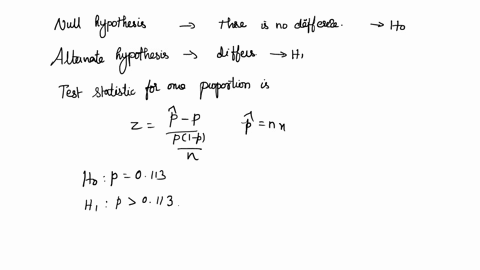 Null hypothesis → there is no differece. → H₀
Alternate hypothesis → differs → H₁
Test statistic for one proportion is
z = (p̂ - p) / (p(1-p) / n)    p̂ = n x
H₀ : p = 0.113
H₁ : p > 0.113.